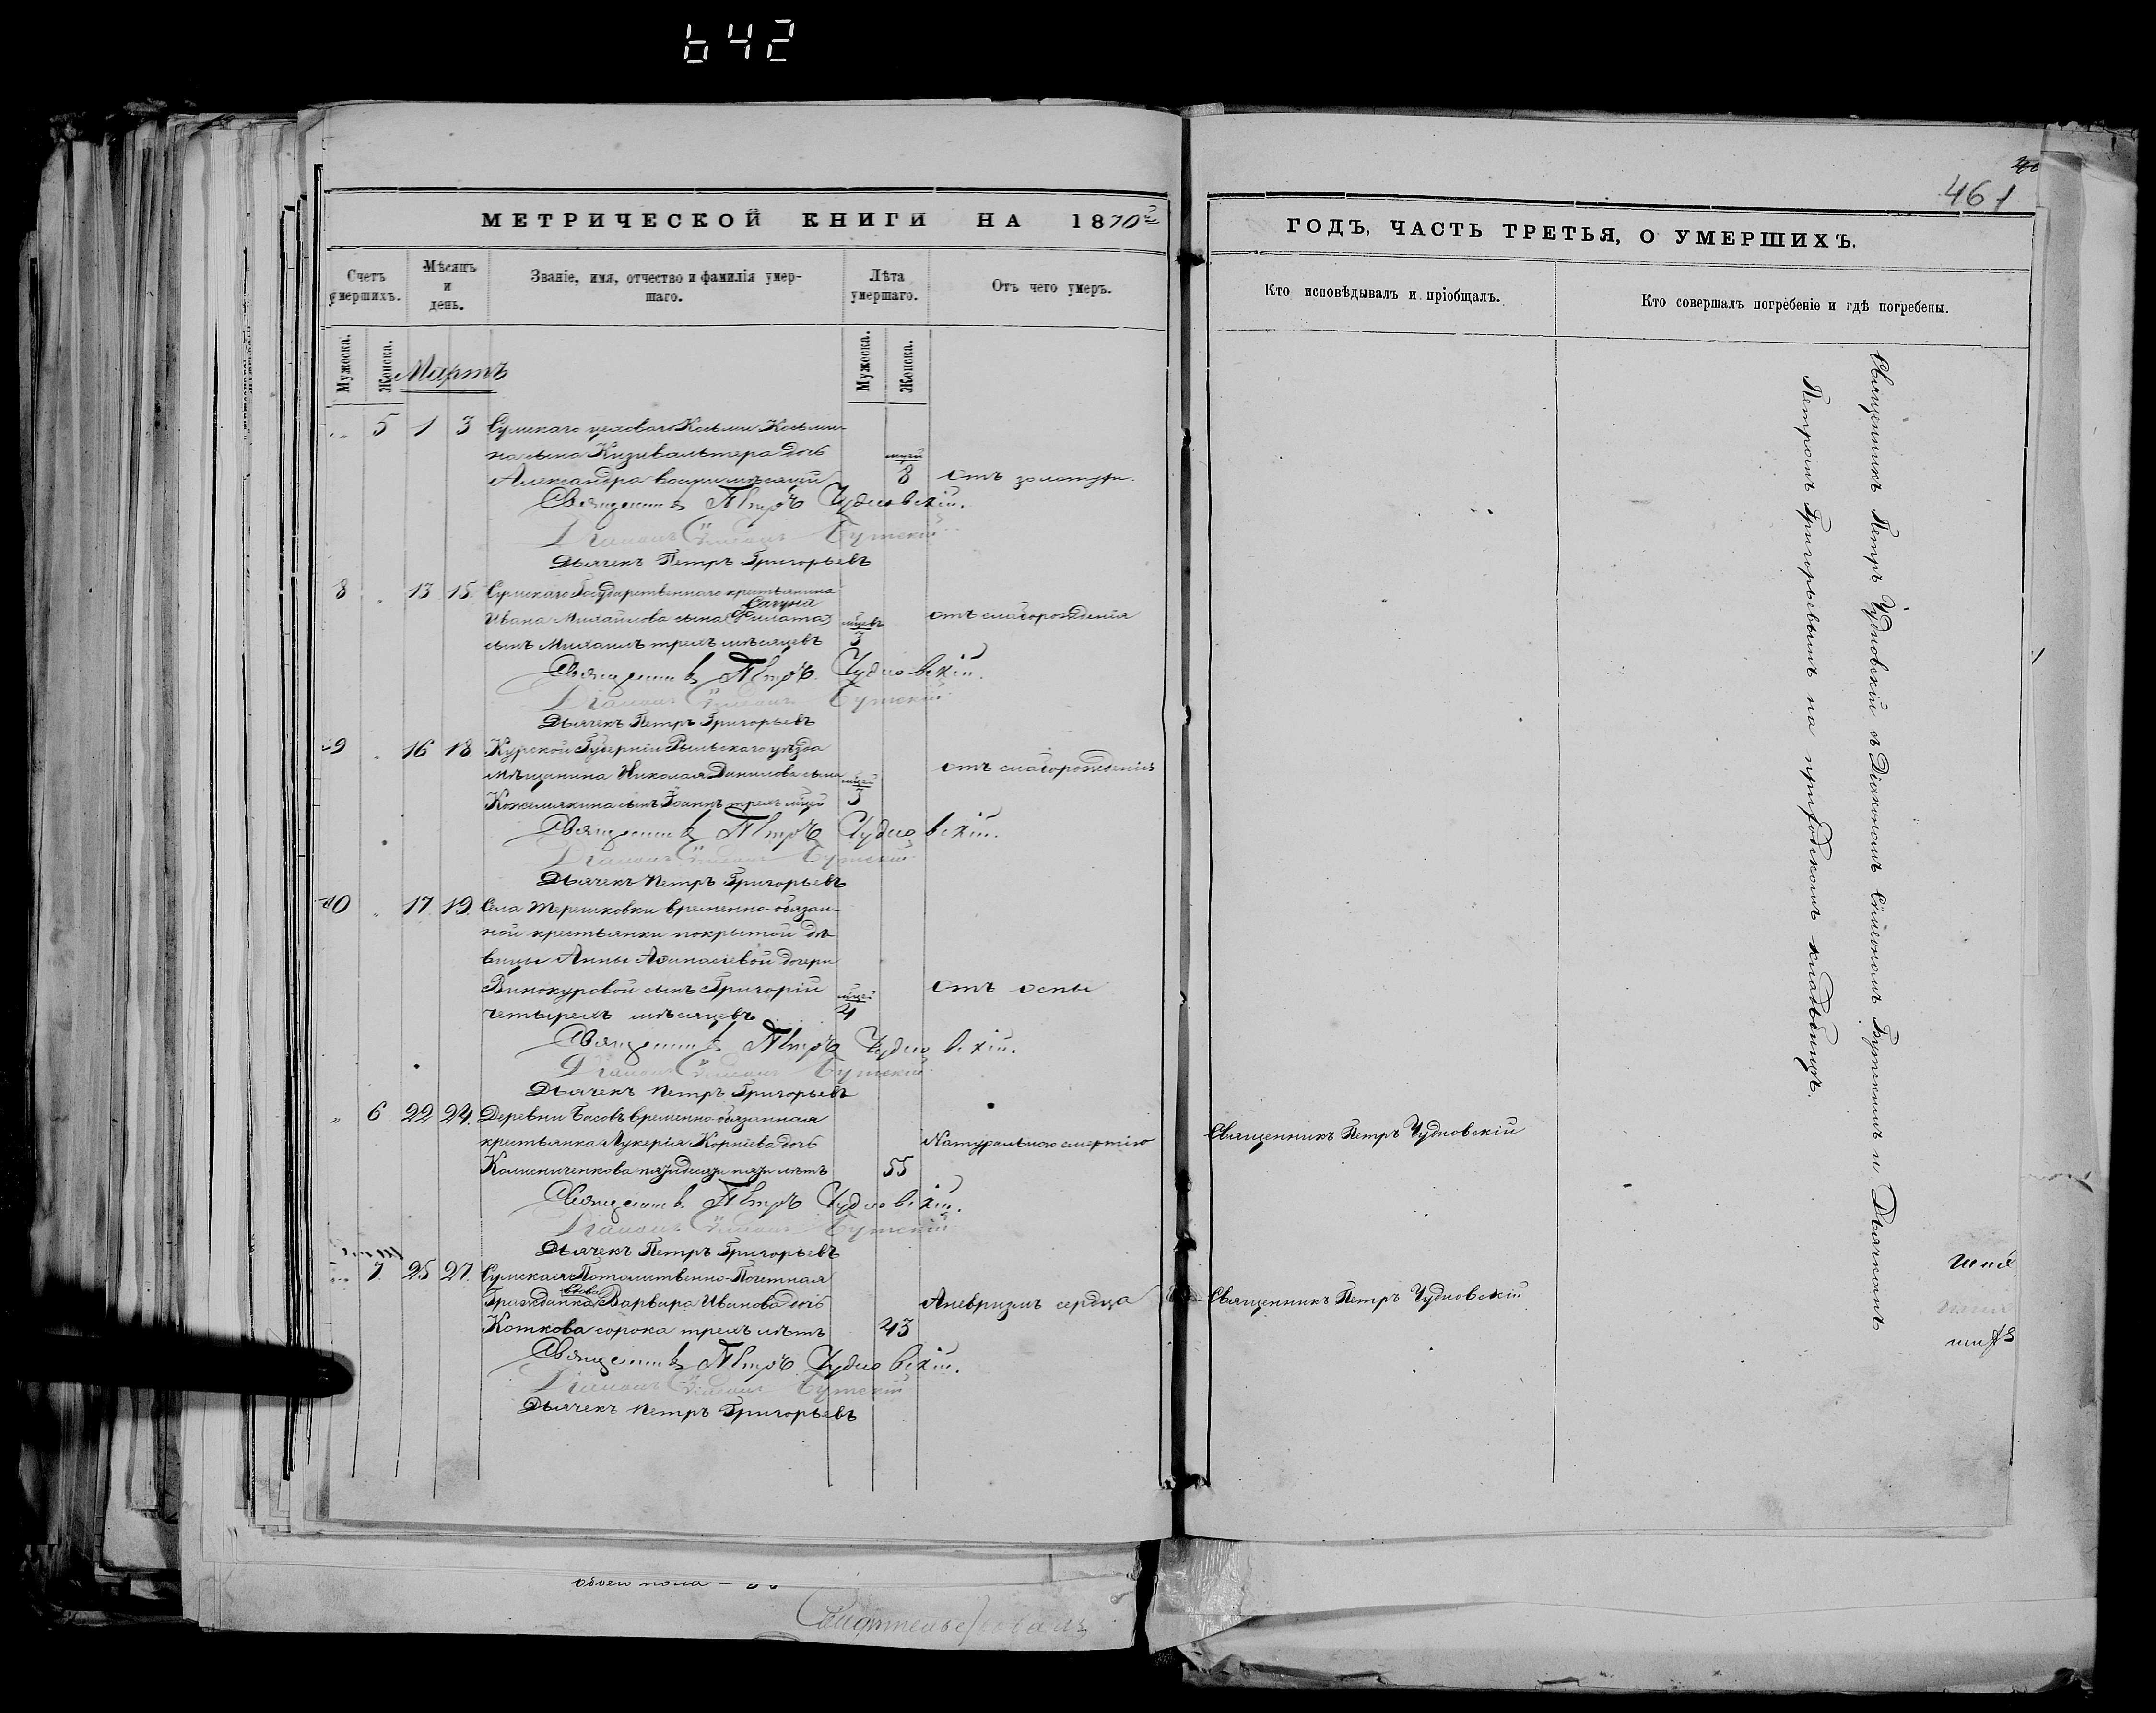 642
461
МЕТРИЧЕСКОЙ КНИГИ НА 1870й
ГОДЪ, ЧАСТЬ ТРЕТЬЯ, О УМЕРШИХЪ.
Счетъ умершихъ.
Мѣсяцъ и день.
Званіе, имя, отчество и фамилія умер-
шаго.
Лѣта умершаго.
Отъ чего умеръ.
Кто исповѣдывалъ и пріобщалъ.
Кто совершалъ погребеніе и гдѣ погребены.
Мужеска.
Женска.
Мужеска.
Женска.
Мартъ
5 1 3 Сумскаго цеховаго Козьмы Козьми-
на сына Кизивальтера дочь мцей
Александра восьми мѣсяцей 8 отъ золотухи.
Священникъ Петръ Чудновскій.
Діаконъ Сѵмеонъ Бутскій
Дьячекъ Петръ Григорьевъ
8 13 15 Сумскаго Государственнаго крестьянина
Сагуна
Ивана Михайлова сына (Филата) мцевъ отъ слаборожденія
сынъ Михаилъ трехъ мѣсяцевъ 3
Священникъ Петръ Чудновскій.
Діаконъ Сѵмеонъ Бутскій
Дьячекъ Петръ Григорьевъ
9 16 18 Курской Губерніи Рыльскаго уѣзда
мѣщанина Николая Данилова сына мцей отъ слаборожденія
Кожемякина сынъ Іоаннъ трехъ мцей 3
Священникъ Петръ Чудновскій.
Діаконъ Сѵмеонъ Бутскій
Дьячекъ Петръ Григорьевъ
10 17 19 Села Терешковки временно-обязан-
ной крестьянки покрытой дѣ-
вицы Анны Аѳанасіевой дочери
Винокуровой сынъ Григорій мцей отъ оспы
четырехъ мѣсяцевъ 4
Священникъ Петръ Чудновскій.
Діаконъ Сѵмеонъ Бутскій
Дьячекъ Петръ Григорьевъ
6 22 24 Деревни Басовъ временно-обязанная
крестьянка Лукерія Корніева дочь Натуральною смертію Священникъ Петръ Чудновскій
Колисниченкова пятидесяти пяти лѣтъ 55
Священникъ Петръ Чудновскій.
Діаконъ Сѵмеонъ Бутскій
Дьячекъ Петръ Григорьевъ
7 25 27 Сумская Потомственно-Почетная
вдова
Гражданка Варвара Иванова дочь Аневризмъ сердца Священникъ Петръ Чудновскій
Коткова сорока трехъ лѣтъ 43
Священникъ Петръ Чудновскій.
Діаконъ Сѵмеонъ Бутскій
Дьячекъ Петръ Григорьевъ
Священникъ Петръ Чудновскій съ Діакономъ Сѵмеономъ Бутскимъ и Дьячкомъ
Петромъ Григорьевымъ на приходскомъ кладбищѣ.
обоего пола
Свидѣтельствовалъ